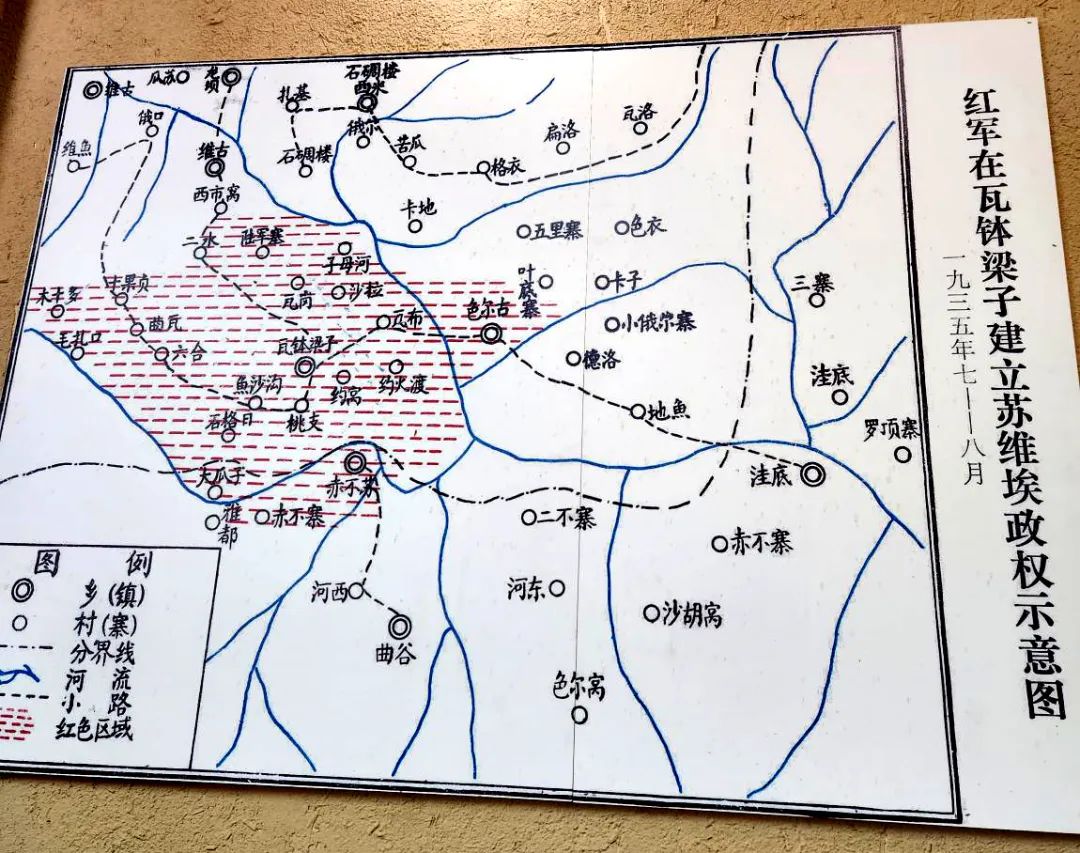 红军在瓦钵梁子建立苏维埃政权示意图
一九三五年七——八月
维古
瓜苏
龙坝
扎基
石碉楼
西米
俄口
俄尔
维鱼
维古
石碉楼
苦瓜
格衣
扁洛
瓦洛
西市窝
卡地
二水
陆军寨
子母河
五里寨
色衣
瓦岗
沙拉
叶底寨
卡子
三寨
曲瓦
瓦布
色尔古
小俄尔寨
毛扎口
六合
瓦钵梁子
德洛
鱼沙沟
约窝
约火渡
洼底
石格日
桃支
地鱼
罗顶寨
大瓜子
赤不苏
洼底
雅都
赤不寨
二不寨
赤不寨
河西
河东
沙胡窝
曲谷
色尔窝
图 例
乡(镇)
村(寨)
分界线
河 流
小 路
红色区域